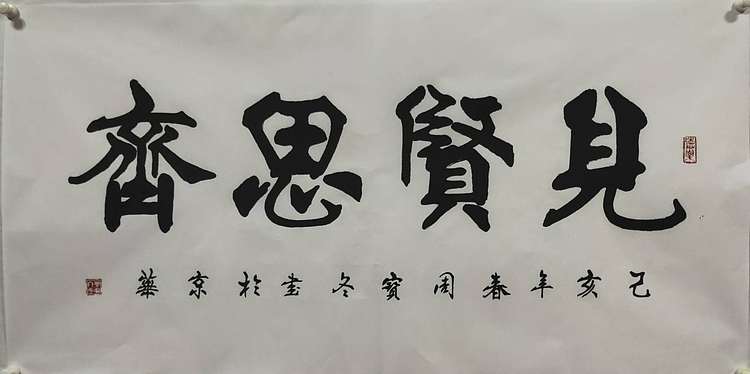 見賢思齊
己亥年春周寳冬書於京華